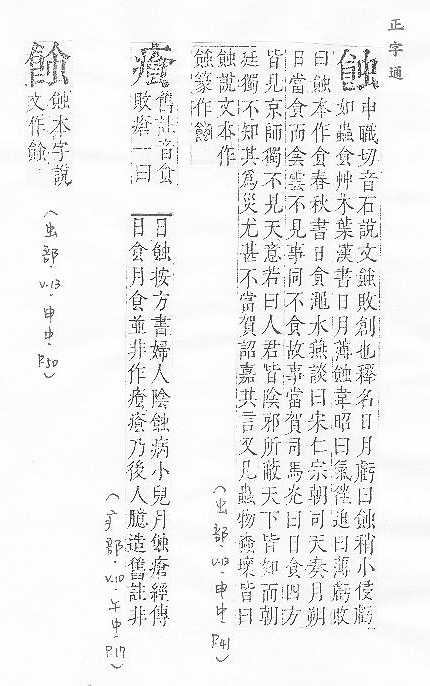 正字通
蝕
申職切音石說文蝕敗創也釋名日月虧曰蝕稍小侵虧
如蟲食艸木葉漢書日月薄蝕韋昭曰氣往迫曰薄虧敗
曰蝕本作食春秋書日食澠水燕談曰宋仁宗朝司天奏月朔
日當食而侌雲不見事同不食故事當賀司馬光曰日食四方
皆見京師獨不見天意若曰人君皆陰邪所蔽天下皆知而朝
廷獨不知其爲災尤甚不當賀詔嘉其言又凡蟲物𧒒壞皆曰
蝕說文本作
餙篆作
(虫部.V.13.申中.P.41)
舊註音食
敗瘡一曰
日蝕按方書婦人陰蝕病小兒月蝕瘡經傳
日食月食並非作 乃後人臆造舊註非
(疒部.V.10.午中.P.17)
蝕本字說
文作
(虫部.V.13.申中.P.50)